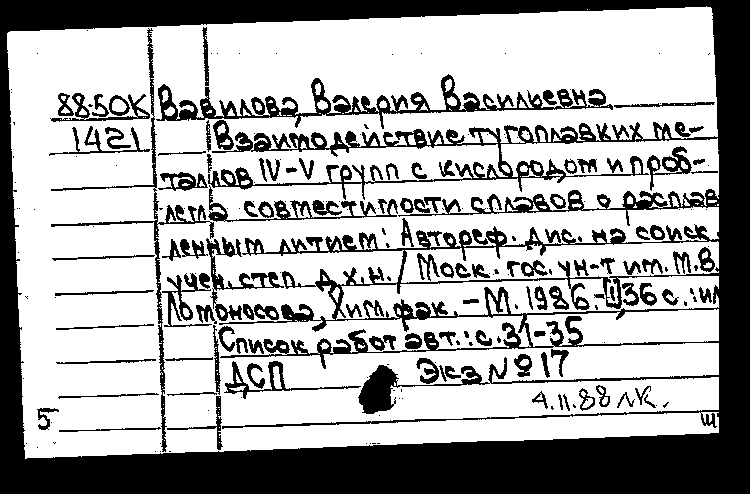 88-50К Вавилова, Валерия Васильевна.
1421 Взаимодействие тугоплавких ме-
таллов IV-V групп с кислородом и проб-
лема совместимости сплавов с расплав
ленным литием: Автореф. дис. на соиск.
учен. степ. д.х.н. / Моск. гос. ун-т им. М.В.
Ломоносова, Хим. фак. - М., 1986. - II, 36 с.: ил
Список работ авт.: с. 31-35
ДСП Экз № 17
4.11.88 ЛК.
5